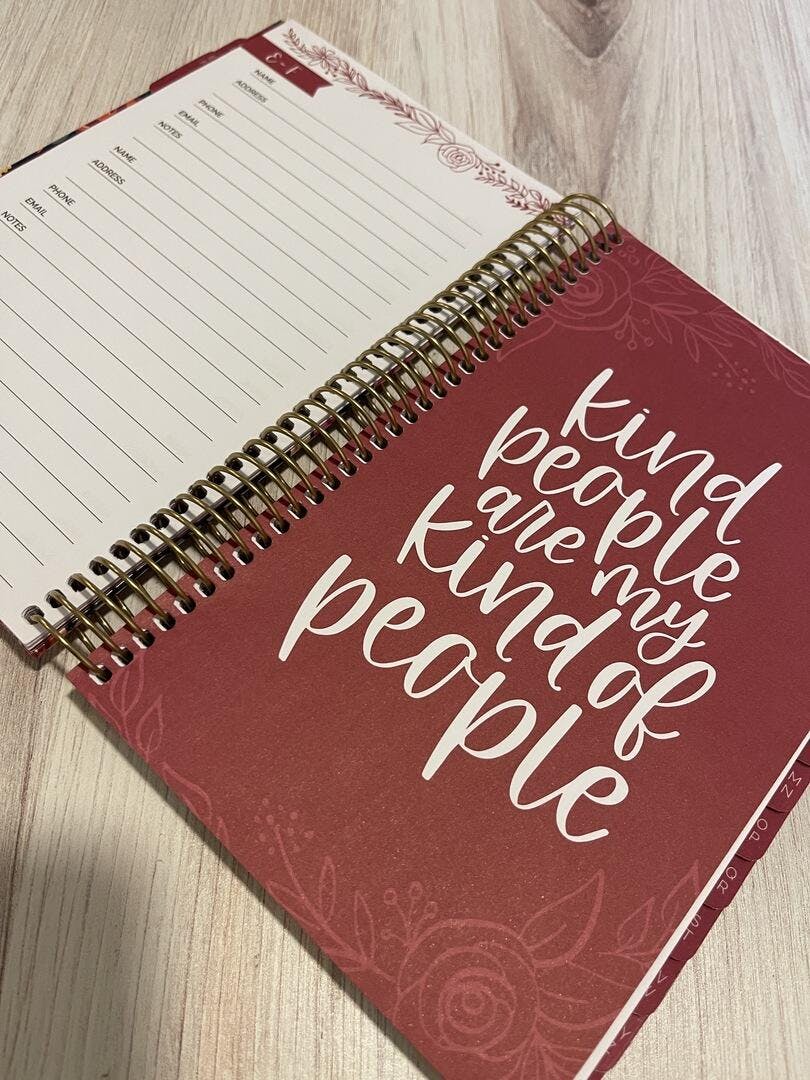 E-F
NAME
ADDRESS
PHONE
EMAIL
NOTES
NAME
ADDRESS
PHONE
EMAIL
NOTES
kind
people
are my
kind of
people
MN
OP
QR
ST